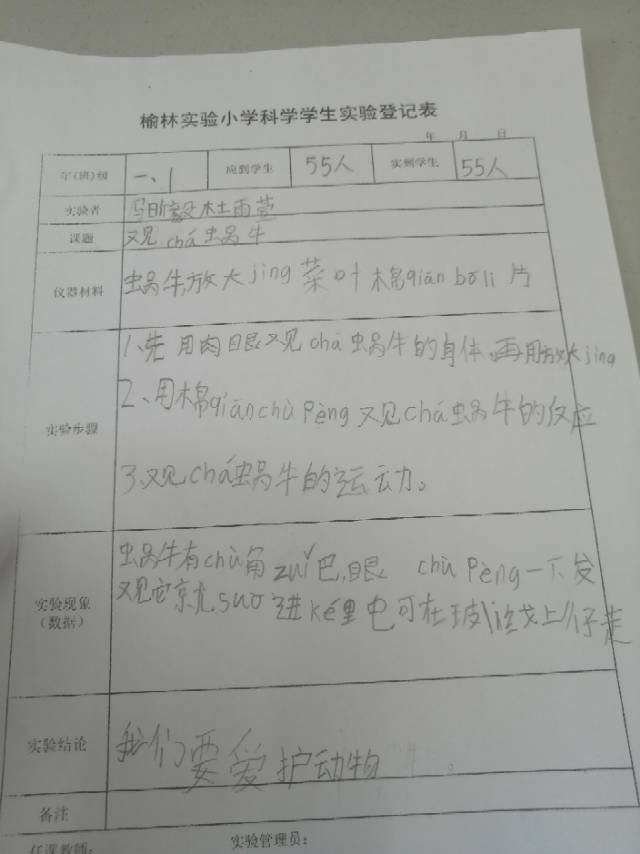 榆林实验小学科学学生实验登记表
年 月 日
年(班)级 一、1 应到学生 55人 实到学生 55人
实验者
课题 观chá蜗牛
仪器材料 蜗牛,放大jing 菜叶 棉qiān bōli 片
1、先用肉眼观chá蜗牛的身体,再用放大jing
2、用棉qiānchù Pèng 观chá蜗牛的反应
实验步骤
3、观chá蜗牛的运动。
蜗牛有chù角 zuǐ巴,眼 chù Pèng一下发
实验现象 观它就suo进ké里也可在玻
(数据)
实验结论 我们要爱护动物。
备注
任课教师: 实验管理员: